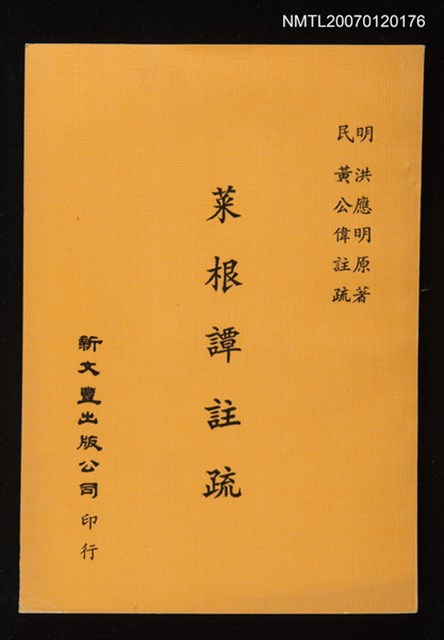 NMTL20070120176
明 洪應明原著
民 黃公偉註疏
菜根譚註疏
新文豐出版公司印行